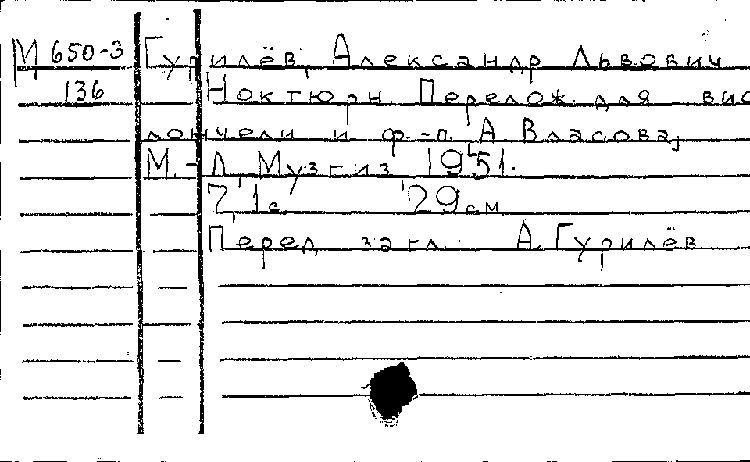 М 650-3 Гурилёв, Александр Львович
136 Ноктюрн Перелож. для вио
лончели и ф.-п. А Власова,
М.-Л, Музгиз 1951.
7,1с 29см
Перед загл. А. Гурилёв